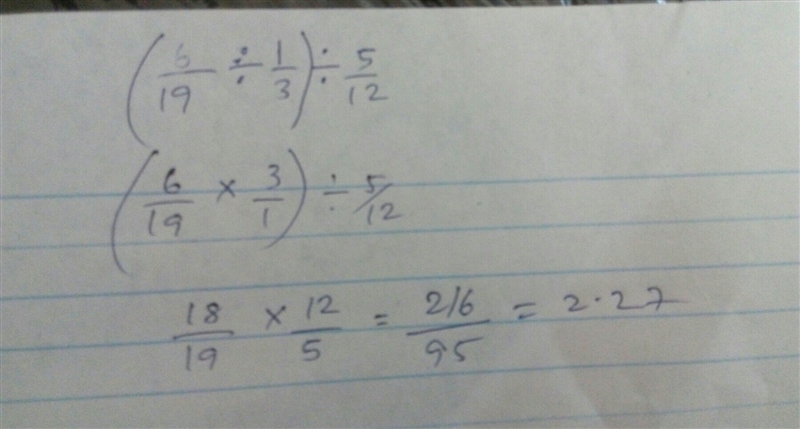 (6/19 ÷ 1/3) ÷ 5/12
(6/19 × 3/1) ÷ 5/12
18/19 × 12/5 = 216/95 = 2.27